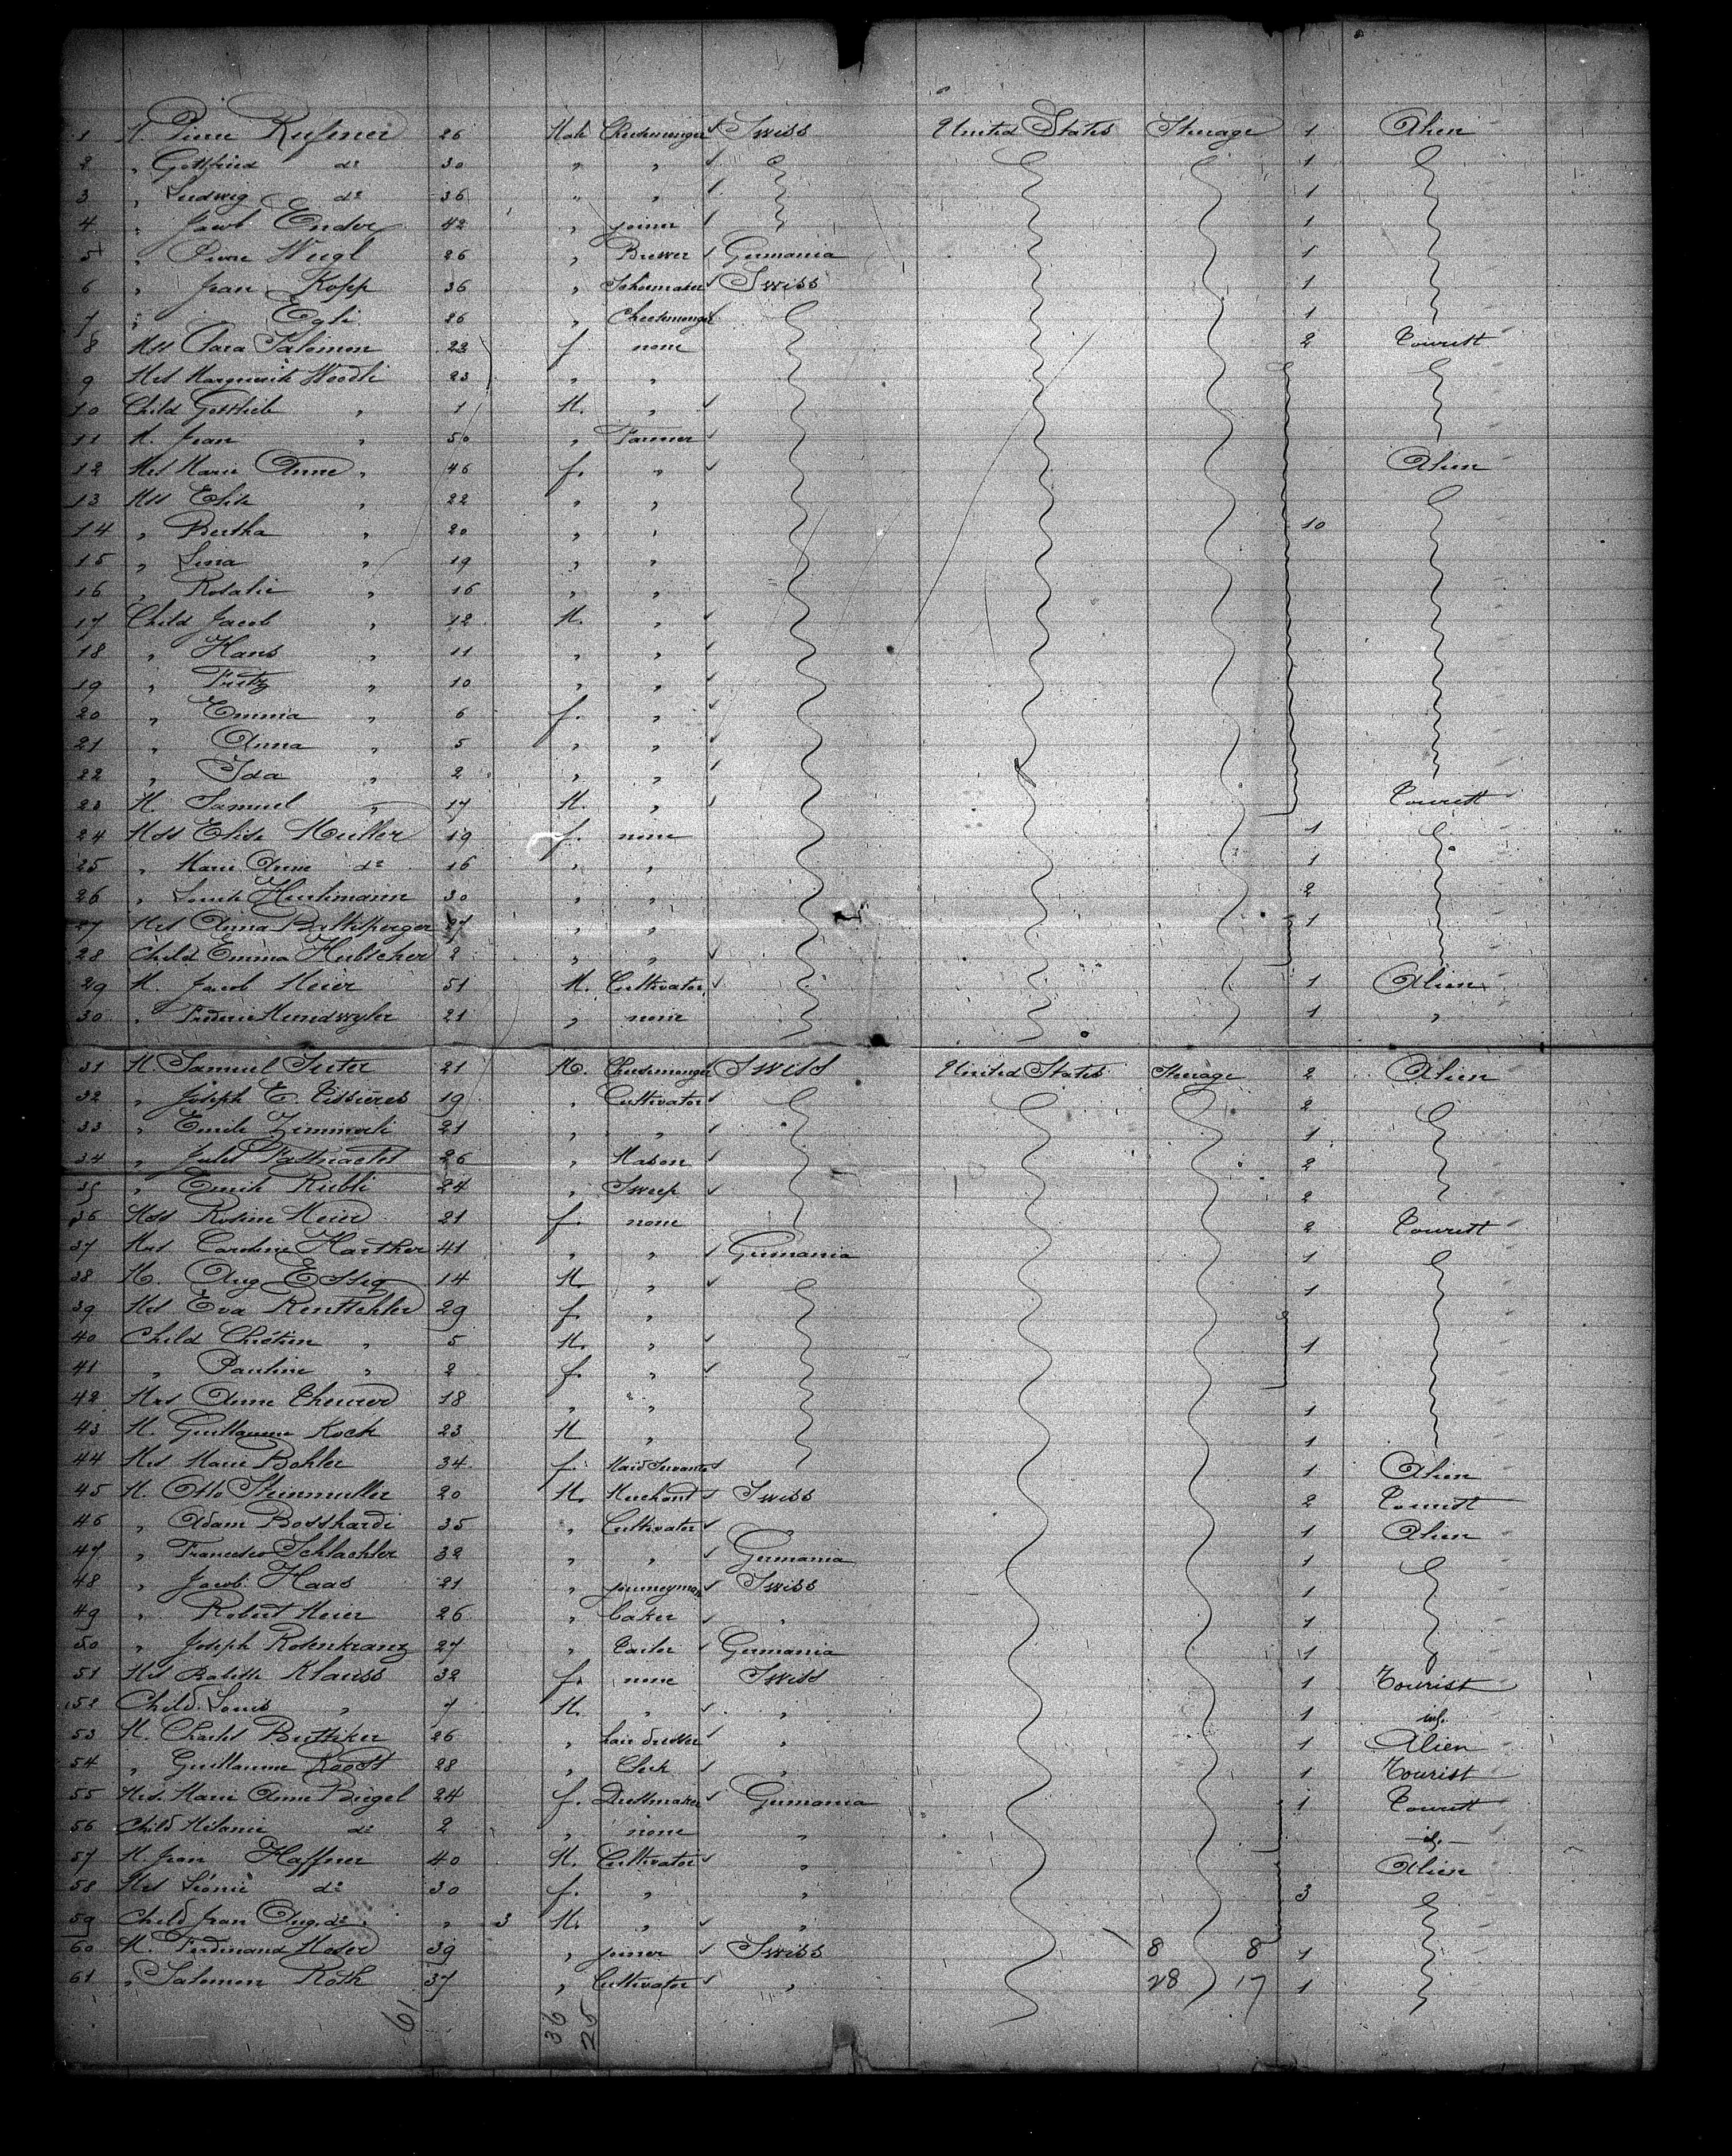 1 M. Pierre 26 Male Cheesemonger Swiss United States Steerage 1 Alien
2 " Gottfried do 30 " " 1
3 " Ludwig do 36 " " 1
4 " Jacob Ender 42 " joiner 1
5 " Pierre Weigl 26 " Brewer Germania 1
6 " Jean Kopp 36 " Schoemaker Swiss 1
7 " " Egli 26 " Cheesemonger 1
8 Mss Clara Salomon 22 f. none 2 Tourist
9 Mrs Marguerite Woodli 23 " "
10 Child Gottlieb " 1 M. "
11 M. Jean " 50 " Farmer
12 Mrs Marie Anne " 46 f. " Alien
13 Mss Elise " 22 " "
14 " Bertha " 20 " " 10
15 " Lina " 19 " "
16 " Rosalie " 16 " "
17 Child Jacob " 12 M. "
18 " Hans " 11 " "
19 " Fritz " 10 " "
20 " Emma " 6 f. "
21 " Anna " 5 " "
22 " Ida " 2 " "
23 M. Samuel " 17 M. " Tourist
24 Mss Elise Muller 19 f. none 1
25 " Marie Anne do 16 " " 1
26 " Louise 30 " " 2
27 Mrs Anna Baltisperger 27 " " 1
28 Child Emma Hubscher 2 " "
29 M. Jacob Meier 51 M. Cultivator 1 Alien
30 " Frederic Mundwyler 21 " none 1 "
31 M Samuel Suter 21 M. Cheesemonger Swiss United States Steerage 2 Alien
32 " Joseph E. Tissieres 19 " Cultivator 2
33 " Emile Zimmerli 21 " " 1
34 " Jules 26 " Mason 2
35 " Emile Kubli 24 " Sweep 2
36 Mss Rosine Meier 21 f. none 2 Tourist
37 Mrs Caroline Harther 41 " " Germania 1
38 M. Aug Essig 14 M. " 1
39 Mrs Eva Rentschler 29 f. "
40 Child Chrétien " 5 M. " 1
41 " Pauline " 2 f. "
42 Mrs Anne Theurer 18 " " 1
43 M. Guillaume Koch 23 M " 1
44 Mrs Marie Bohler 34 f. Maid Servante 1 Alien
45 M. Otto Steinmuller 20 M. Merchant Swiss 2 Tourist
46 " Adam Bosshardi 35 " Cultivator 1 Alien
47 " Francesco Schlachter 32 " " Germania 1
48 " Jacob Haas 21 " journeyman Swiss 1
49 " Robert Meier 26 " baker " 1
50 " Joseph Rosenkranz 27 " Tailor Germania 1
51 Mrs Babette Klauss 32 f. none Swiss 1 Tourist
52 Child Louis " 7 M. " " 1
53 M. Charles Buttiker 26 " hair dresser " 1 Alien
54 " Guillaume Roost 28 " Clerk " 1 Tourist
55 Mrs. Marie Anne Biegel 24 f. Dressmaker Germania 1 Tourist
56 Child Melanie do 2 " none "
57 M. Jean Haffner 40 M. Cultivator " Alien
58 Mrs Léonie do 30 f. " " 3
59 Child Jean Aug. do " 3 M. " "
60 M. Ferdinand Moser 39 " joiner Swiss 8 8 1
61 " Salomon Roth 37 " Cultivator " 28 17 1
61 36 25